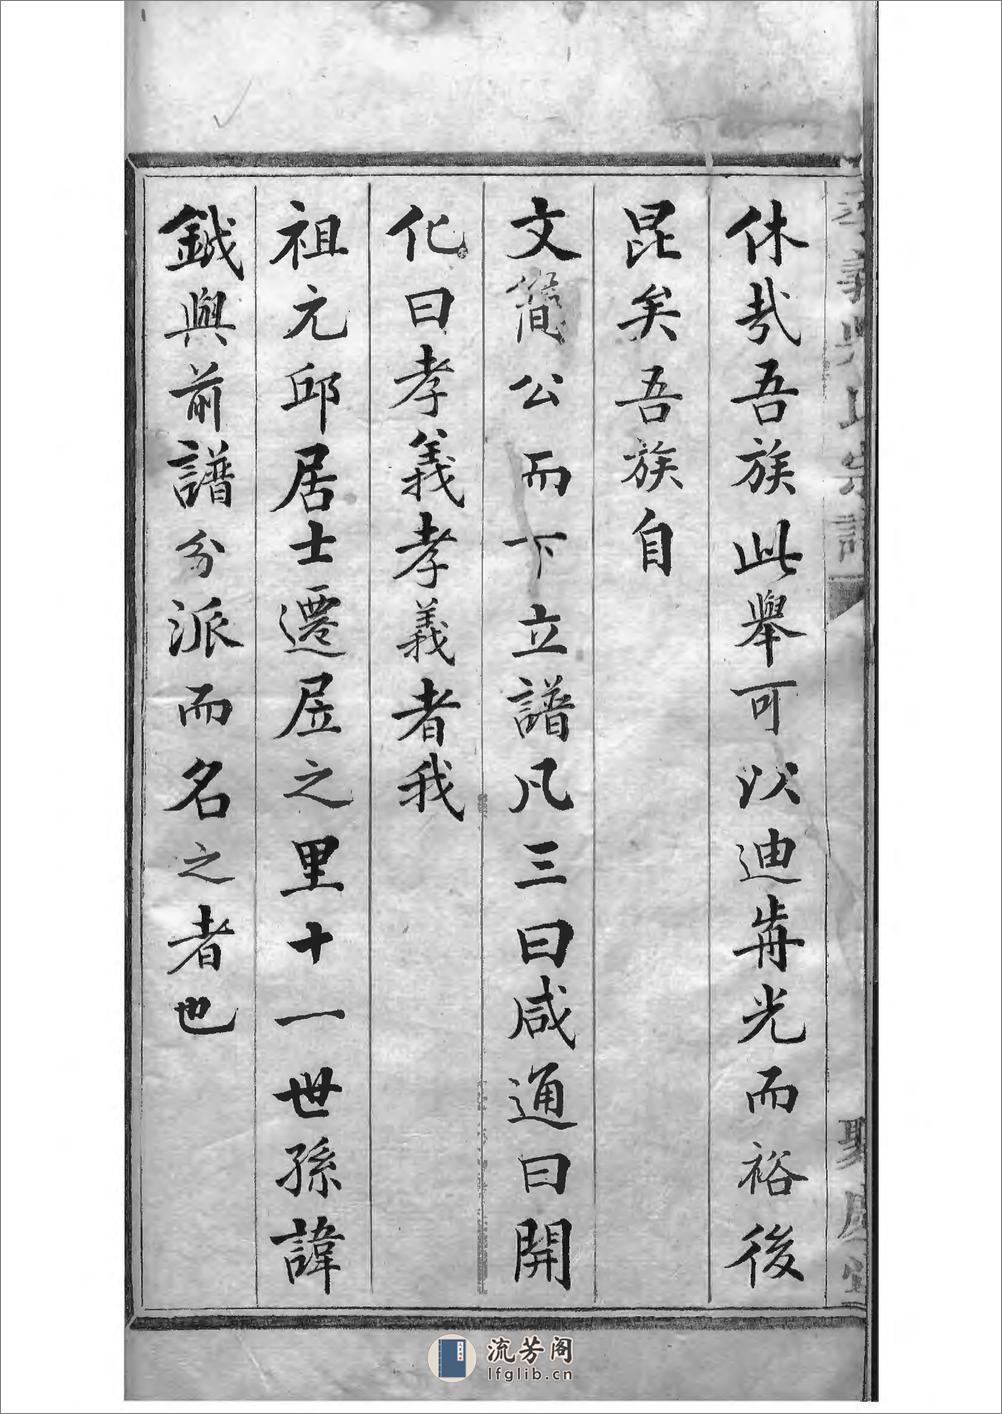 休哉吾族此舉可以迪前光而裕後
昆矣吾族自
文簡公而下立譜凡三曰咸通曰開
化曰孝義孝義者我
祖元邱居士遷居之里十一世孫諱
鉞與前譜分派而名之者也
流芳阁
lfglib.cn